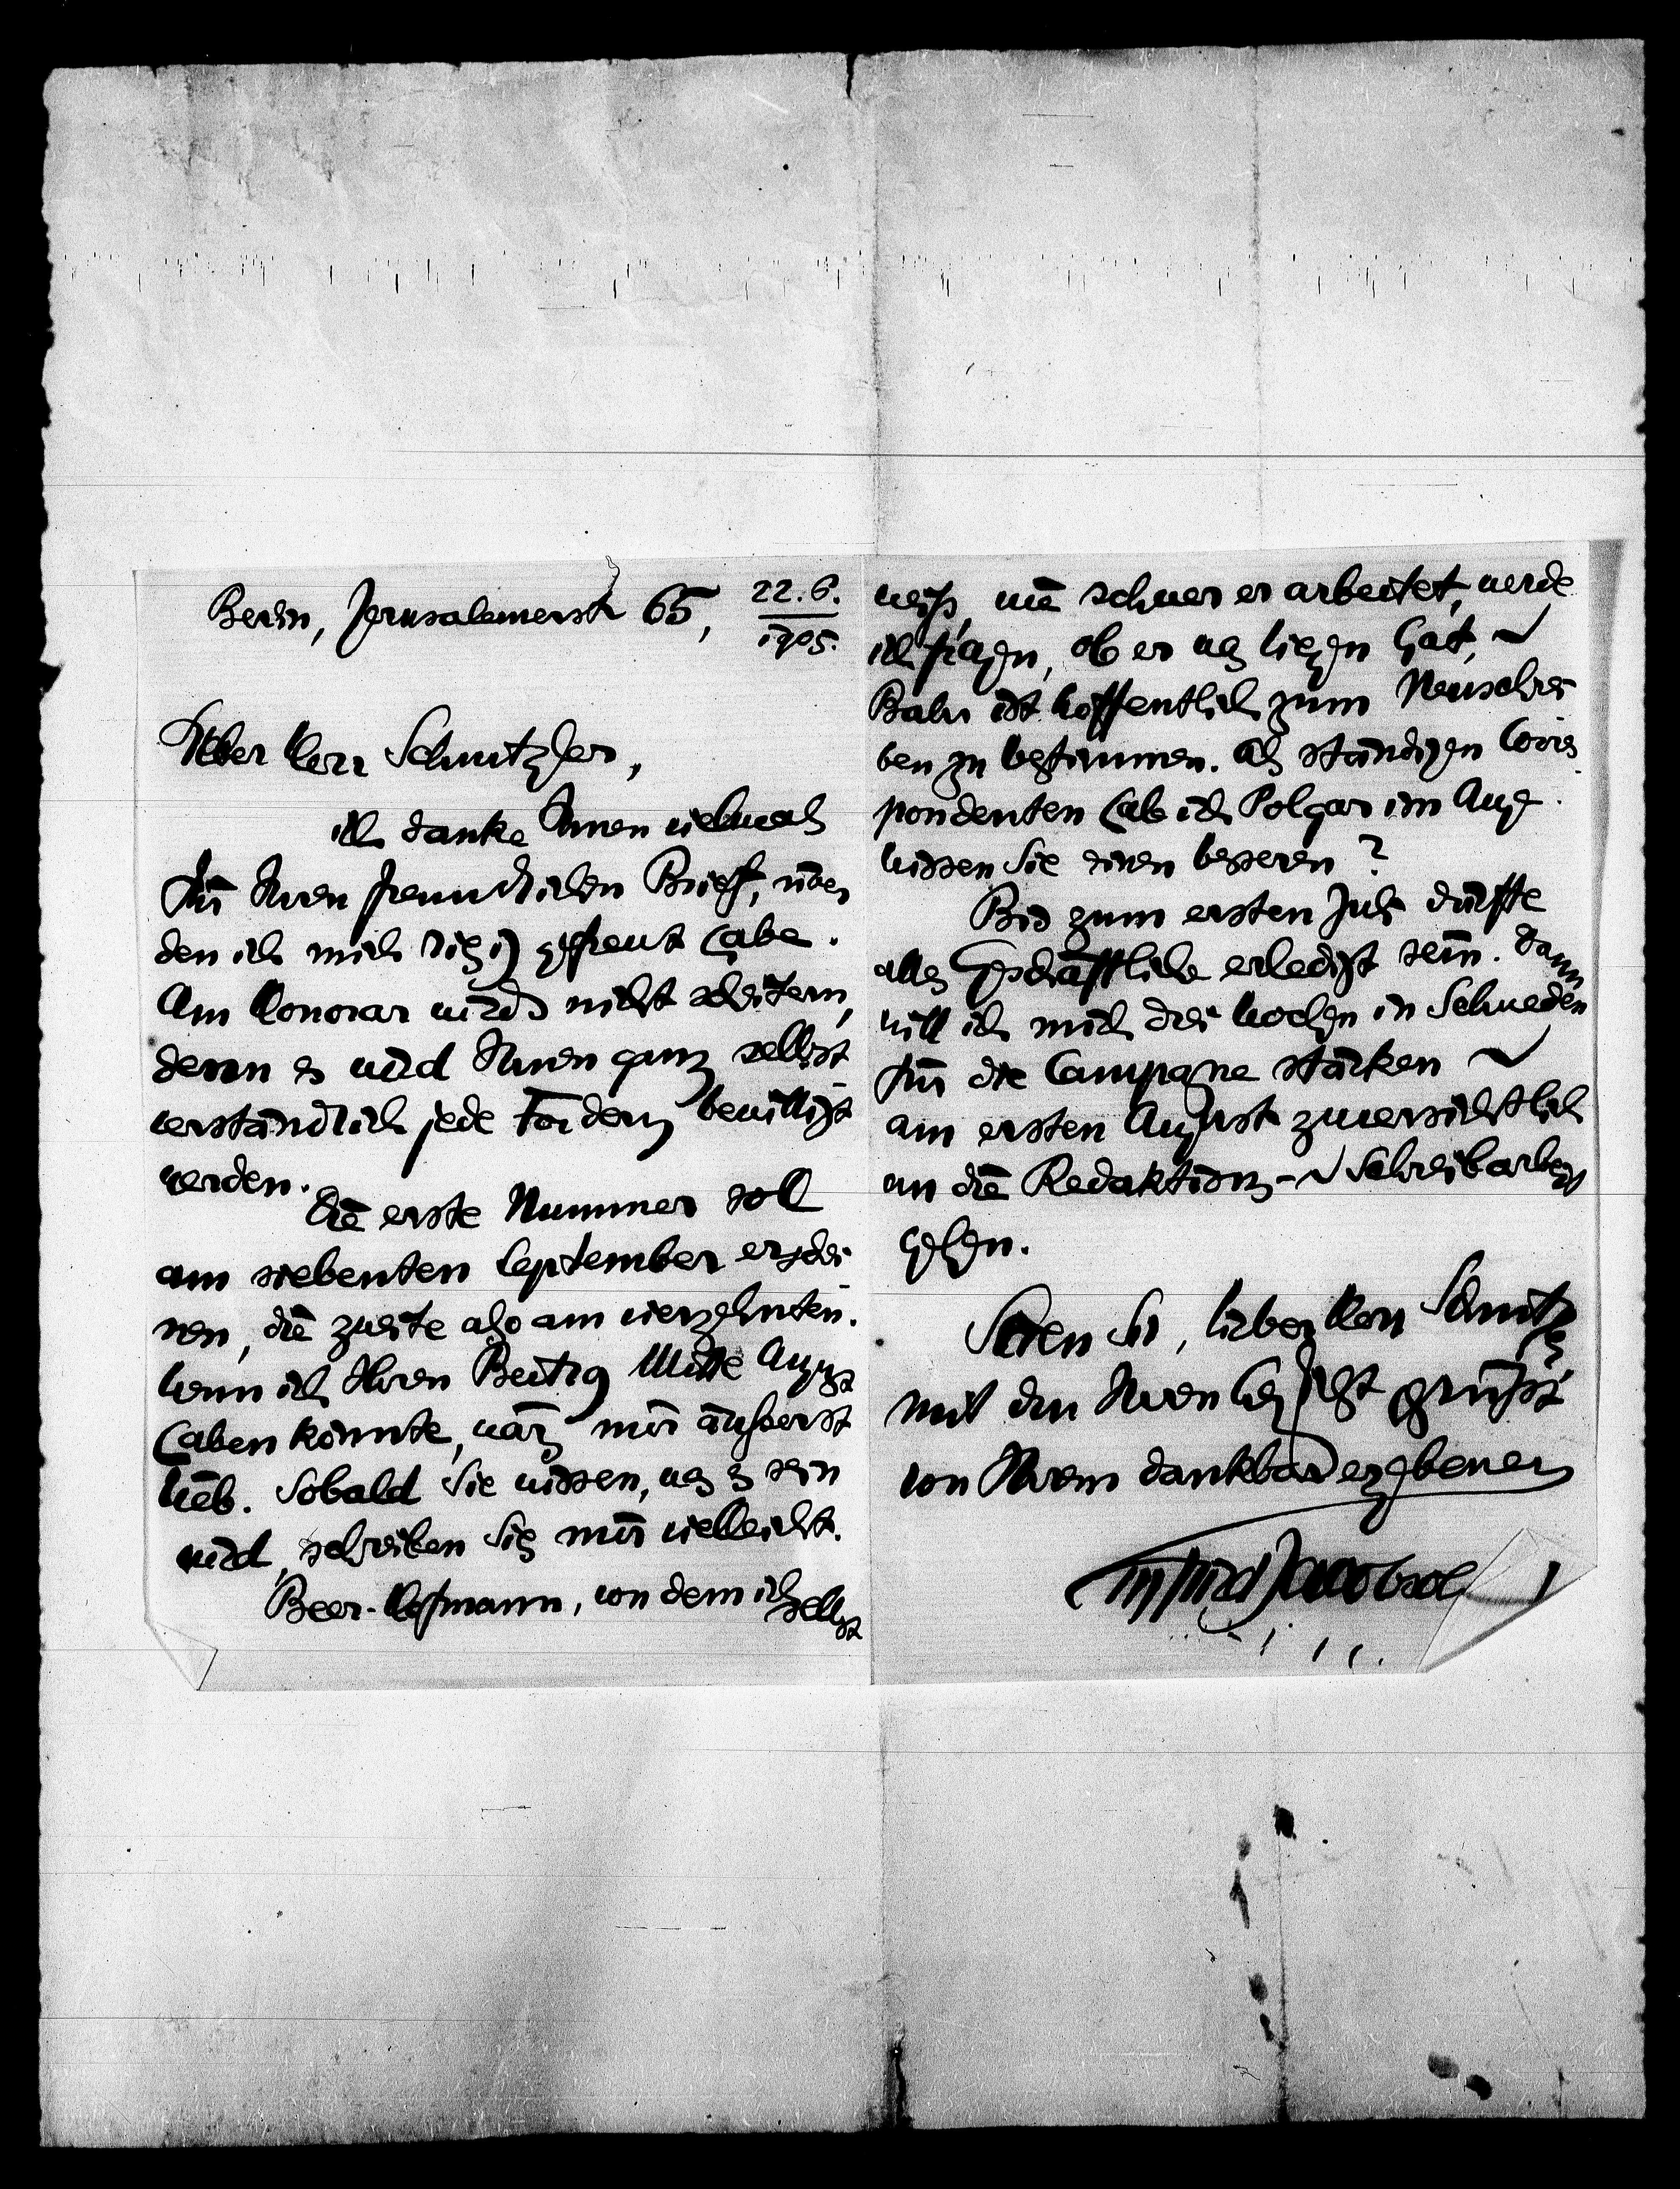 Berlin, Jerusalemerstr 65, 22.6.
1905.
Lieber Herr Schnitzler,
ich danke Ihnen vielmals
für Ihren freundlichen Brief, über
den ich mich riesig gefreut habe.
Am Honorar wirds nicht scheitern,
denn es wird Ihnen ganz selbst
verständlich jede Forderung bewilligt
werden.
Die erste Nummer soll
am siebenten September erschei
nen, die zweite also am vierzehnten.
Wenn ich Ihren Beitrag Mitte August
haben könnte, wärs mir äußerst
lieb. Sobald Sie wissen, was es sein
wird, schreiben Sie's mir vielleicht.
Beer-Hofmann, von dem ich selbst
weiß, wie schwer er arbeitet, werde
ich fragen, ob er was liegen hat,
Bahr ist hoffentlich zum Neuschrei
ben zu bestimmen. Als ständigen Corres
pondenten hab ich Polgar im Aug.
Wissen Sie einen besseren?
Bis zum ersten Juli dürfte
alles Geschäftliche erledigt sein. Dann
will ich mich drei Wochen in Schweden
für die Campagne stärken
am ersten August zuversichtlich
an die Redaktions- Schreibarbeit
gehen.
Seien Sie, lieber Herr Schnitzler
mit den Ihren gegrüßt
von Ihrem dankbar ergebenen
Siegfried Jacobsohn